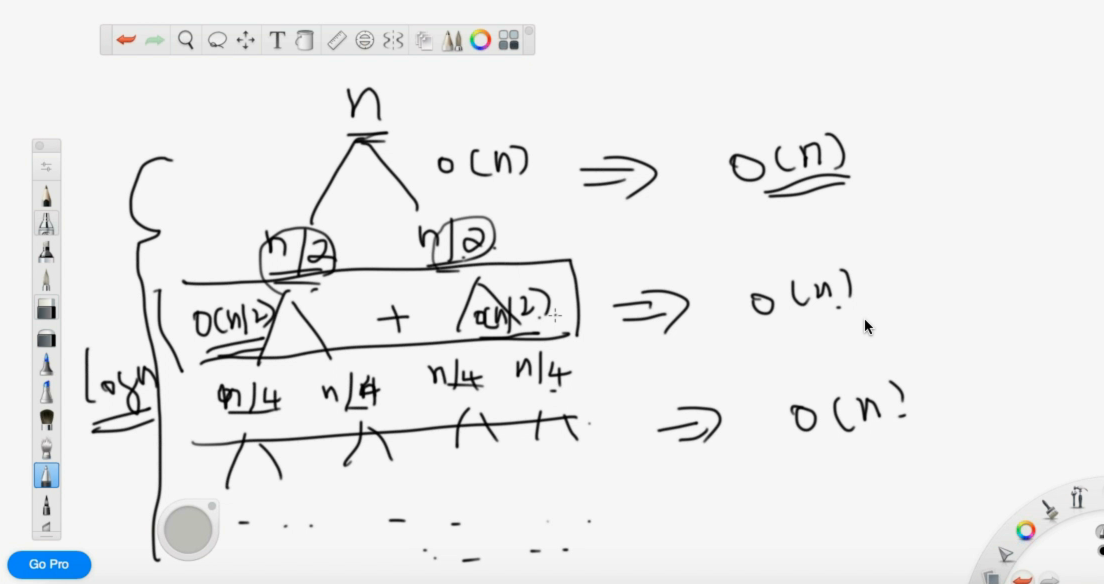 T
n
O(n) ⇒ O(n)
n/2 n/2
O(n/2) + O(n/2) ⇒ O(n)
logn
n/4 n/4 n/4 n/4
⇒ O(n)
Go Pro